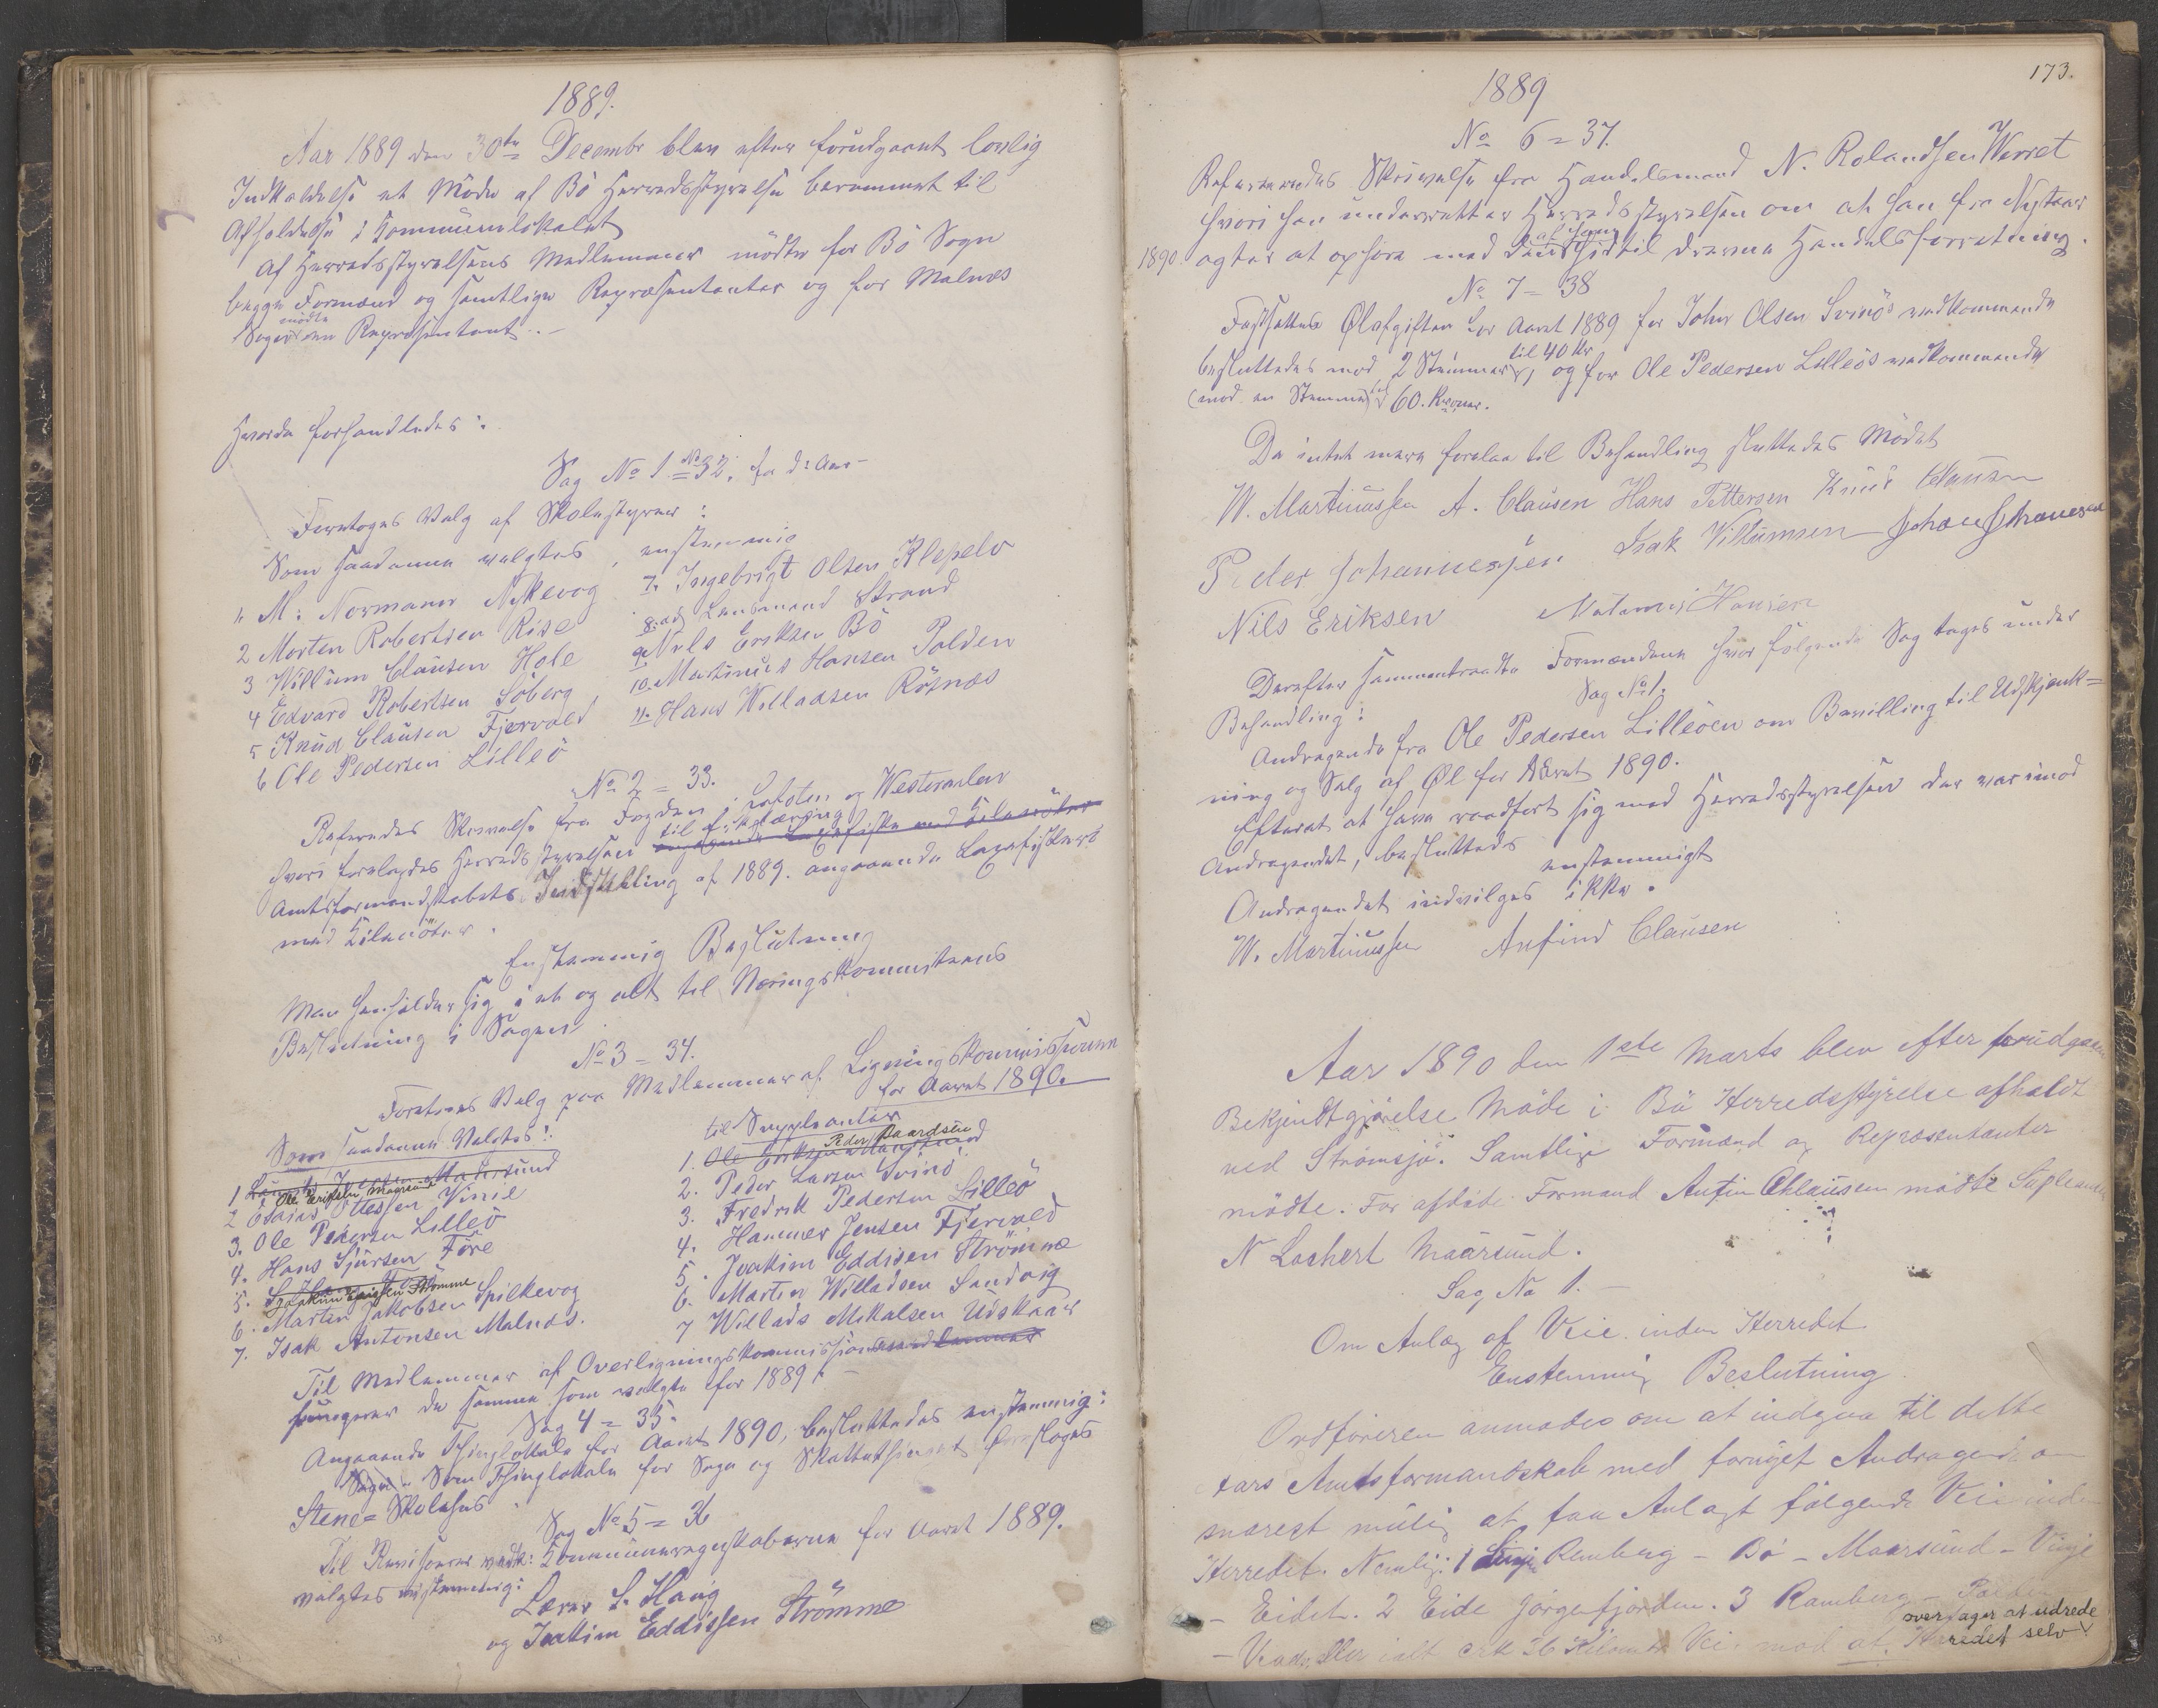 1889.
Aar 1889 den 30te Decembr blev efter forudgaaet lovlig
Indkaldelse et Möde af Bö Herredsstyrelse berammet til
Afholdelse i Kommunelokalet
Af Herredsstyrelsens Medlemmer mödte for Bö Sogn
begge Formænd og samtlige Repræsentanter og for Malnes
Sogn mödte en Repræsentant. –
Hvorda forhandledes:
Sag No 1 = No 32. fra d: Aar –
Foretoges Valg af Skolestyrer:
Som saadanne valgtes, enstemmig
1. M: Normann Nykevog
2 Morten Robertsen Rise
3 Willum Clausen Hole
4 Edvard Robertsen Söberg
5 Knud Clausen Fjervold
6 Ole Pedersen Lilleö
7. Ingebrigt Olsen Klepelv
8. Lensmand Strand
9. Nils Eriksen Bö
10. Martinus Hansen Polden
11. Hans Willadsen Rösnæs
No 2 = 33.
Refereredes Skrivelse fra Fogden i Lofoten og Westeraalen
hvori forelagdes Herredsstyrelsen til Erklæring
Amtsformandskabets Indstilling af 1889. angaaende Laxefiskeri
med Kilenöter.
Enstemmig Beslutning
Man henholder sig i et og alt til Næringskommiteens
Beslutning i Sagen.
No 3 = 34.
Foretoges Valg paa Medlemmer af Ligningskommissionen
for Aaret 1890.
Som saadanne Valgtes:
1 Ole Eriksen Maarsund
2 Esaias Ottessen Vinie
3. Ole Pedersen Lilleö
4. Hans Sjursen Före
5. Joakim Eddissen Strömme
6. Martin Jakobsen Spilkevog
7. Isak Antonsen Malnæs.
til Suppleanter
1. Peder Baardsen
2. Peder Larsen Svinö
3. Fredrik Pedersen Lilleö
4. Hammer Jensen Fjervold
5. Joakim Eddisen Strömme
6. Martin Willadsen Sandvig
7 Willads Mikalsen Udskaar
Til Medlemmer af Overligningskommissionen
fungerer de samme som valgte for 1889. –
Sag 4 = 35.
Angaaende Thinglokale for Aaret 1890, besluttedes enstemmig:
Som Thinglokale for Sage og Skattethinget foresloges
Stene= Skolehus
Sag No 5 = 36
Til Revisorer vedk: Kommuneregnskaberne for Aaret 1889.
valgtes enstemmig:
Lærer L. Haug
og Joakim Eddissen Strömme
173.
1889
No 6 = 37.
Refereredes Skrivelse fra Handelsmand N. Rolandsen Werret
hvori han underretter Herredsstyrelsen om at han fra Nytaar
1890 agter at ophöre med den af ham hidtil drevne Handelsforretning.
No 7 = 38
Fastsattes Ølafgiften for Aaret 1889 for Johr Olsen Svinös vedkommende
besluttedes mod 2 Stemmer, til 40 Kr og for Ole Pedersen Lilleös vedkommende
(mod en Stemme) til 60. Kroner.
Da intet mere forelaa til Behandling sluttedes Mödet
W. Martinussen A. Clausen Hans Pettersen Knud Clausen
Peder Johannessen Isak Villumsen Johan Johannesen
Nils Eriksen Hansen
Derefter sammentraadte Formændene hvor fölgende Sag toges under
Behandling: Sag No 1.
Andragende fra Ole Pedersen Lilleöen om Bevilling til Udskjænk=
ning og Salg af Øl for Aaret 1890.
Efterat at have raadfört sig med Herredsstyrelsen der var imod
Andragendet, besluttedes enstemmigt
Andragendet indvilges ikke.
W. Martinussen Anfind Clausen
Aar 1890 den 1ste Marts blev efter forudgaaen
Bekjendtgjörelse Möde i Bö Herredsstyrelse afholdt
ved Strömsjö. Samtlige Formænd og Repræsentanter
mödte. For afdöde Formand Anfin Chlausen mödte Supleanten
N Lockert Maarsund.
Sag No 1. –
Om Anlæg af Veie inden Herredet
Enstemmig Beslutning
Ordföreren anmodes om at indgaa til dette
Aars Amtsformandskab med fornyet Andragende om
snarest mulig at faa Anlagt fölgende Veie inden
Herredet. Nemlig: 1 Linje Ramberg – Bö – Maarsund – Vinje
– Eidet. 2 Eide Jörgefjorden. 3 Ramberg – Polden
– ialt 36 Kilometer Vei mod at Herredet selv overtager at udrede